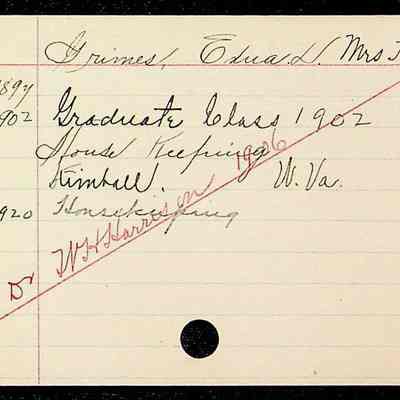 Grimes, Edna D. Mrs
1897
1902 Graduate Class 1902
House Keeping
Kimball. W. Va.
1920 Housekeeping
Dr W H Harrison 1906